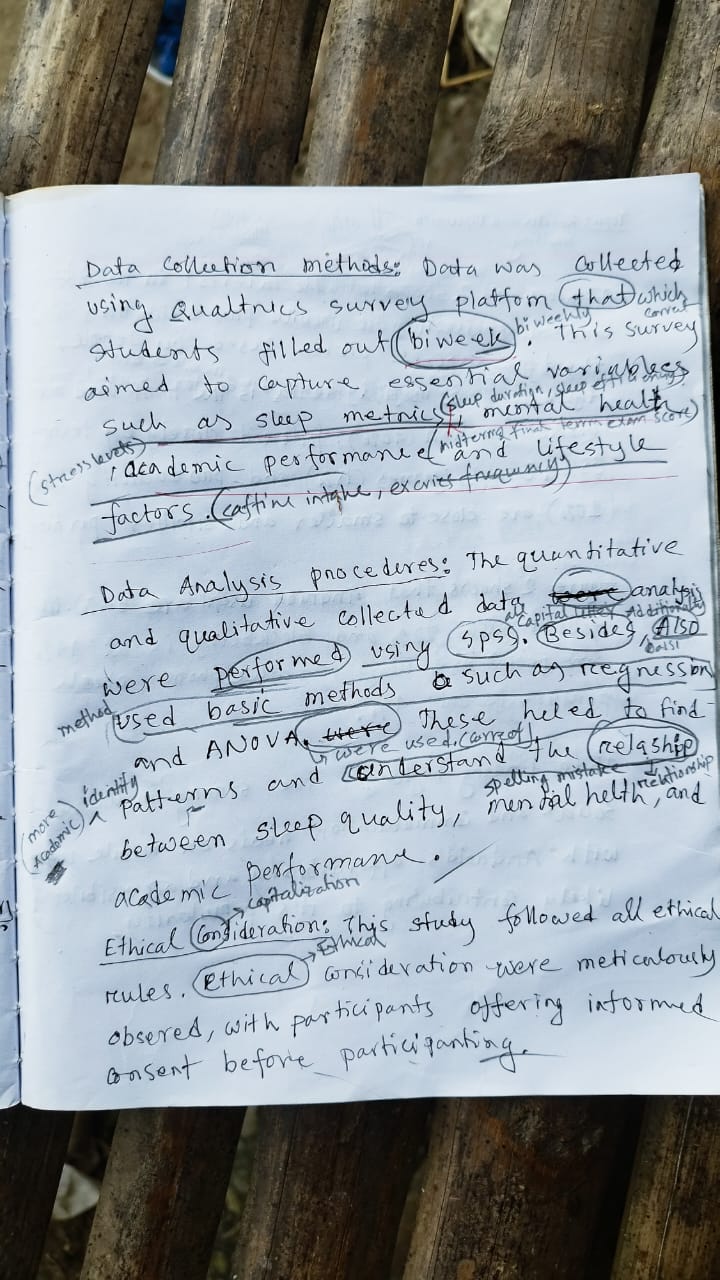 Data Collection methods: Data was collected
using Qualtrics survey platfom that which
students filled out biweek biweekly. This survey
correct
aimed to capture essential variables
(sleep duration, sleep
such as sleep metrics, mental healt
(stress levels)
, academic performance (midterms final term exam score) and lifestyle
factors. (caffine intake, excries frequency)
Data Analysis procederes: The quantitative
and qualitative collected data were analysis
all capital letter Additionally
were performed using (spss). Besides, Also
method used basic methods such as regnession
and ANOVA. were These heled to find
were used. (correct)
(more Academic) identity patterns and understand the relaship
spelling mistake relationship
between sleep quality, mental helth, and
academic performane.
capitalization
Ethical Consideration: This study followed all ethical
Ethical
rules. Ethical consideration were meticalously
obsered, with participants offering informed
consent before participanting.